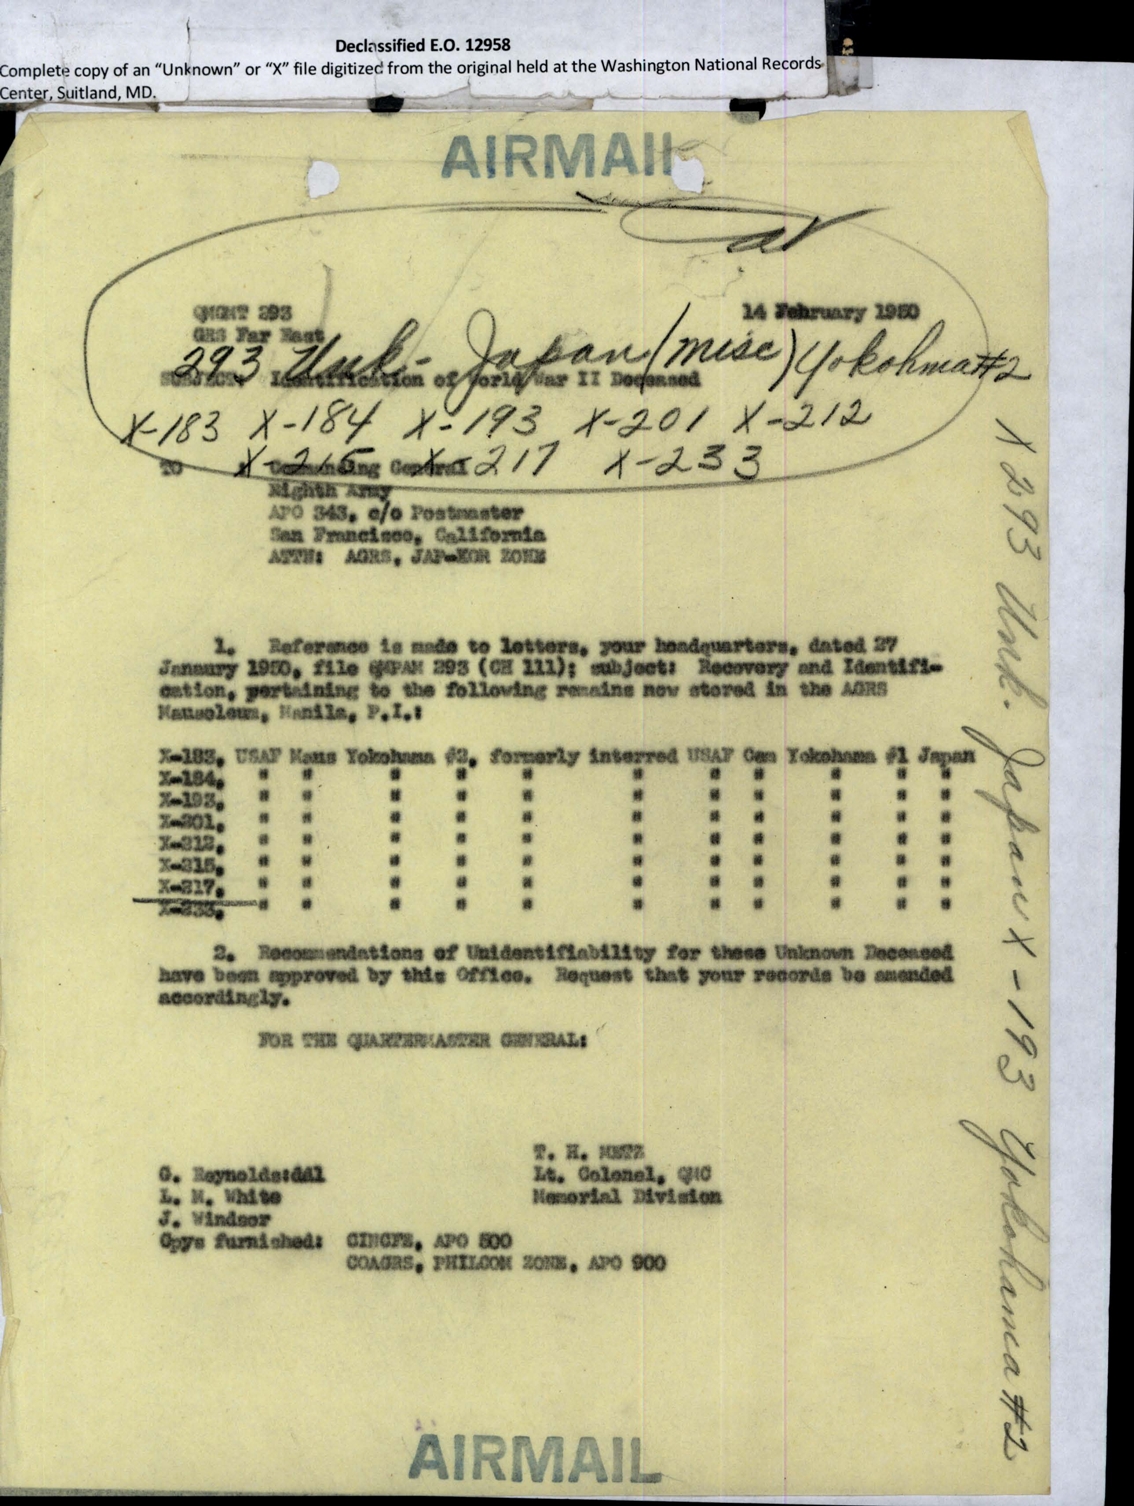 Declassified E.O. 12958
Complete copy of an “Unknown” or “X” file digitized from the original held at the Washington National Records
Center, Suitland, MD.
AIRMAIL
QMGMT 293
14 February 1950
GRS Far East
293 Unk- Japan (misc) Yokohma #2
SUBJECT: Identification of World War II Deceased
X-183 X-184 X-193 X-201 X-212
X-215 X-217 X-233
TO Commanding General
Eighth Army
APO 343, c/o Postmaster
San Francisco, California
ATTN: AGRS, JAP-KOR ZONE
1. Reference is made to letters, your headquarters, dated 27
January 1950, file QMPAM 293 (CH 111); subject: Recovery and Identifi-
cation, pertaining to the following remains now stored in the AGRS
Mausoleum, Manila, P.I.:
X-183, USAF Maus Yokohama #2, formerly interred USAF Cem Yokohama #1 Japan
X-184, " " " " " " " " " " "
X-193, " " " " " " " " " " "
X-201, " " " " " " " " " " "
X-212, " " " " " " " " " " "
X-215, " " " " " " " " " " "
X-217, " " " " " " " " " " "
X-233, " " " " " " " " " " "
2. Recommendations of Unidentifiability for these Unknown Deceased
have been approved by this Office. Request that your records be amended
accordingly.
FOR THE QUARTERMASTER GENERAL:
T. H. METZ
G. Reynolds:ddl
Lt. Colonel, QMC
L. M. White
Memorial Division
J. Windsor
Cpys furnished: CINCFE, APO 500
COAGRS, PHILCOM ZONE, APO 900
X 293 Unk. Japan X-193 Yokohama #2
AIRMAIL